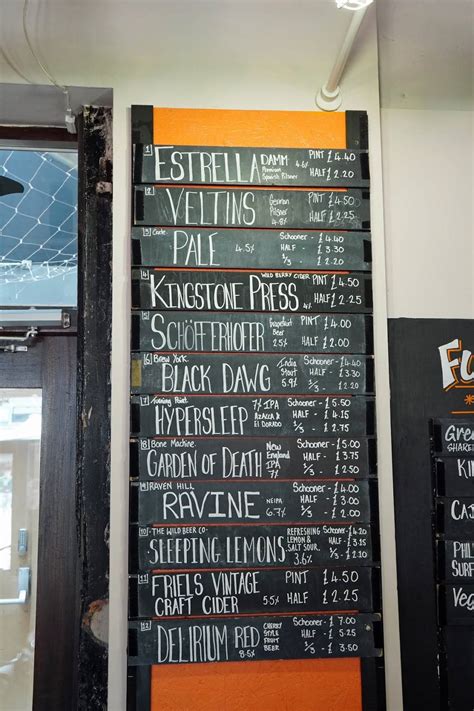 1 ESTRELLA DAMM 4.6% Premium Spanish Pilsner PINT £4.40
HALF £2.20
2 VELTINS German Pilsner 4.8% PINT £4.50
HALF £2.25
3 PALE 4.5% Schooner - £4.40
HALF - £3.30
1/3 - £2.20
4 KINGSTONE PRESS WILD BERRY CIDER 4% PINT £4.50
HALF £2.25
5 SCHÖFFERHOFER Grapefruit Beer 2.5% PINT £4.00
HALF £2.00
6 Brew York BLACK DAWG India Stout 5.9% Schooner - £4.40
HALF - £3.30
1/3 - £2.20
7 Turning Point HYPERSLEEP 7% IPA AZACCA & EL DORADO Schooner - £5.50
HALF - £4.15
1/3 - £2.75
8 Bone Machine GARDEN OF DEATH New England IPA 7% Schooner - £5.00
HALF - £3.75
1/3 - £2.50
9 RAVEN HILL RAVINE NEIPA 6.7% Schooner - £4.00
HALF - £3.00
1/3 - £2.00
10 -THE WILD BEER CO- SLEEPING LEMONS REFRESHING LEMON & SALT SOUR. 3.6% Schooner - £4.40
HALF - £3.35
1/3 - £2.25
11 FRIELS VINTAGE CRAFT CIDER 5.5% PINT £4.50
HALF £2.25
12 DELIRIUM RED 8.5% CHERRY STYLE FRUIT BEER Schooner - £7.00
HALF - £5.25
1/3 - £3.50
Gree
SHARE
KI
CA
PHIL
SURF
Veg